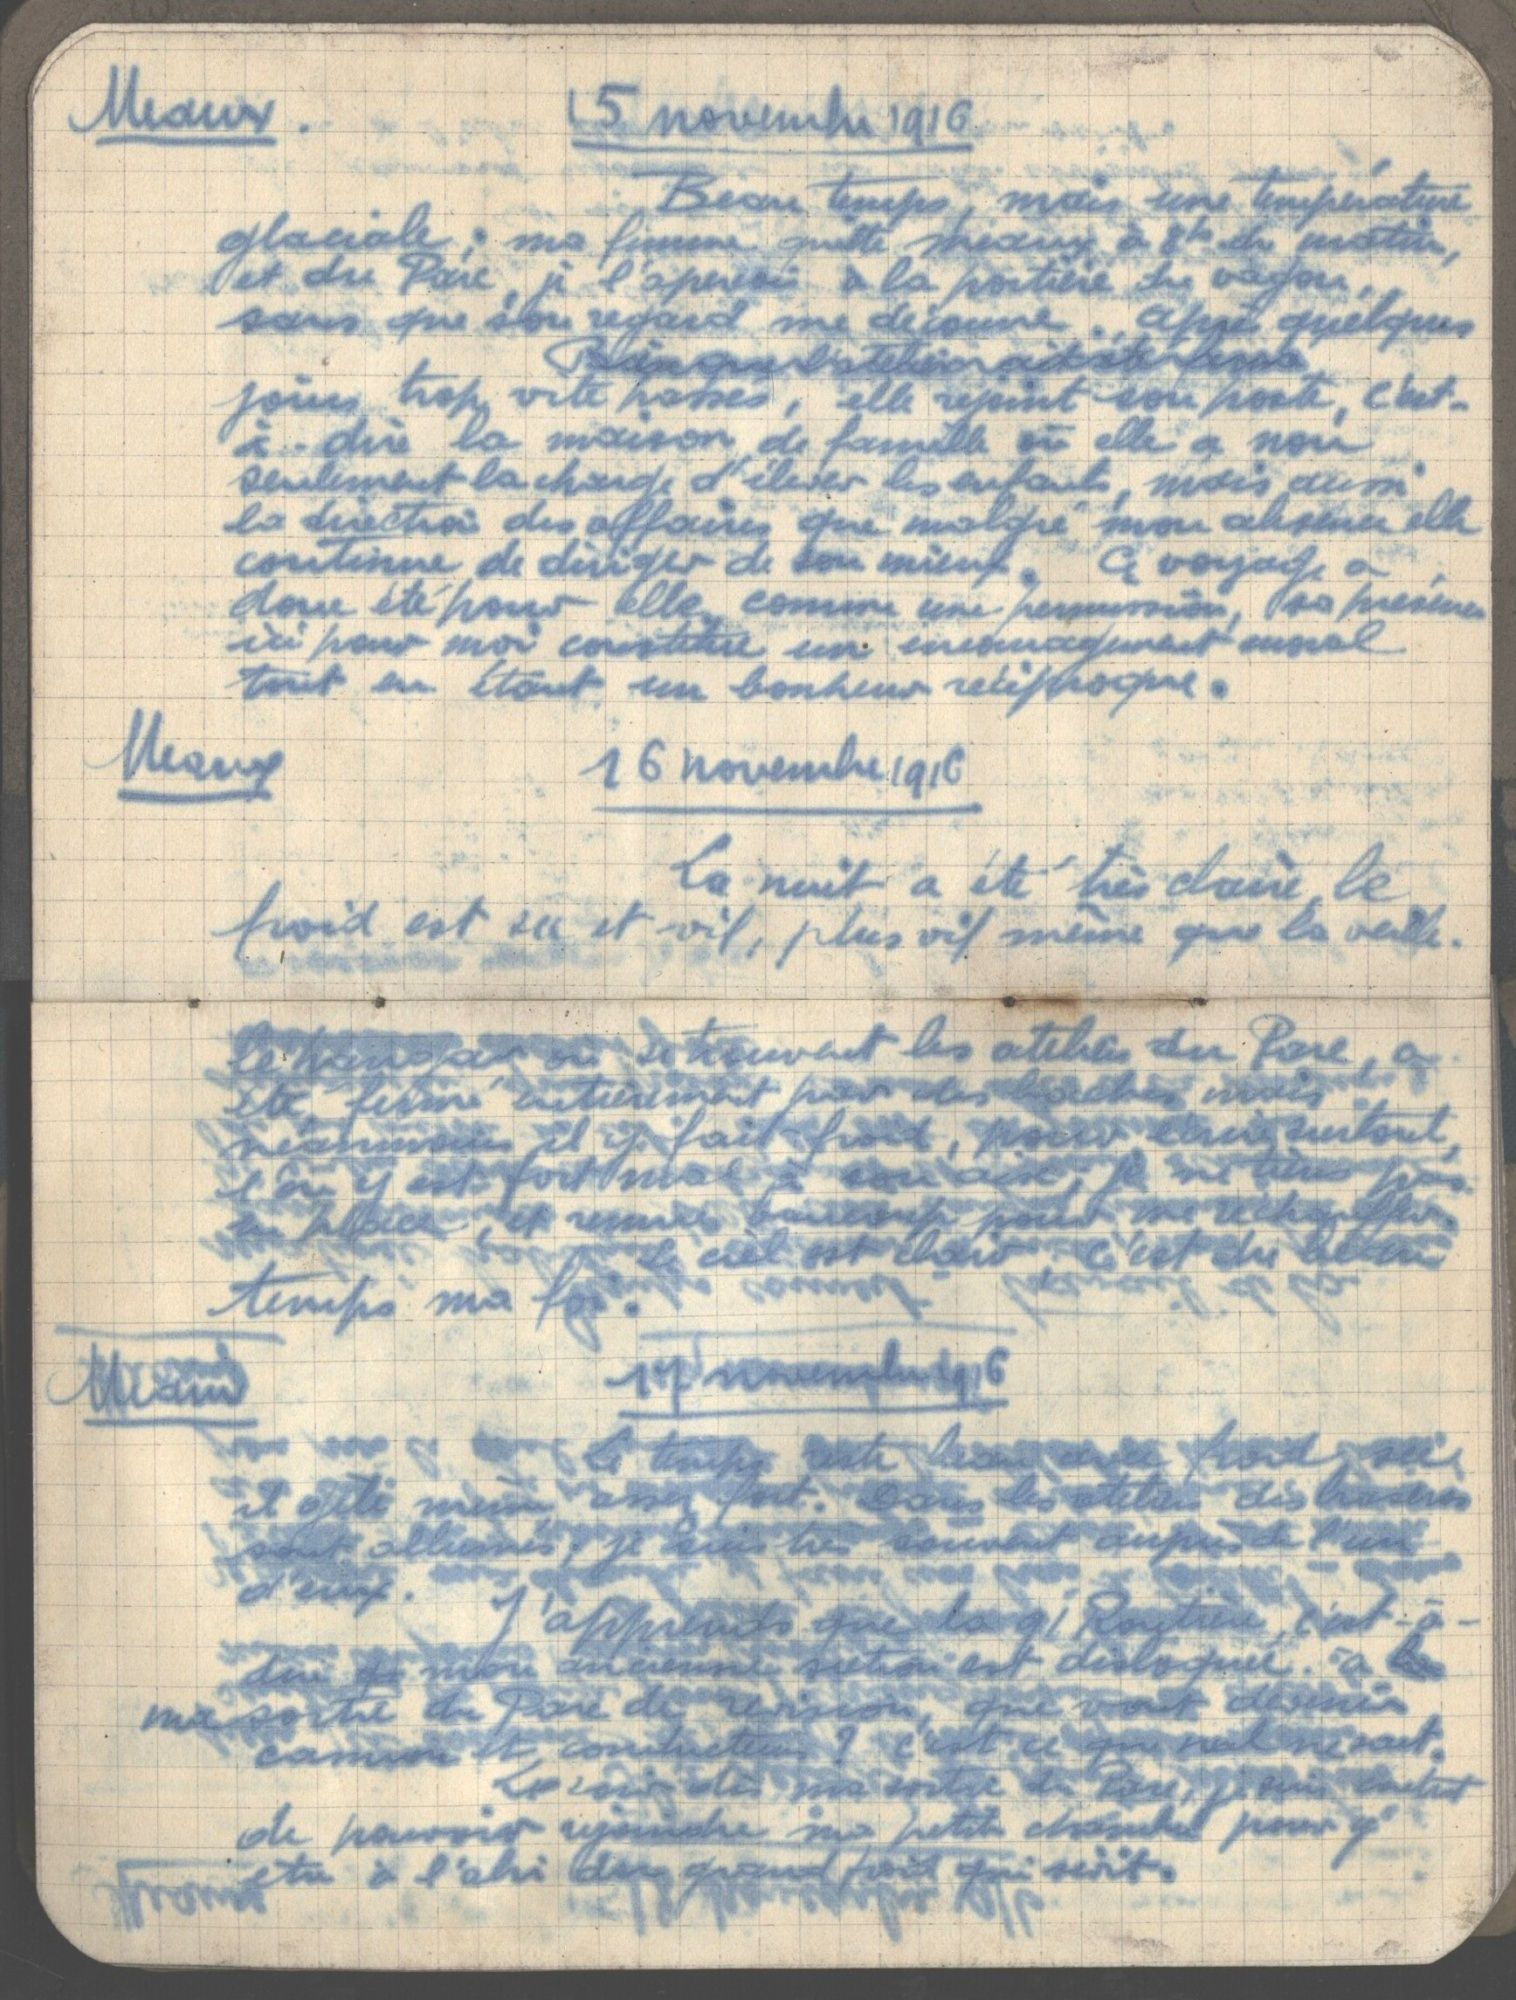 Meaux. 15 novembre 1916
Beau temps, mais une température
glaciale; ma femme quitte Meaux à 8h du matin,
et du Parc, je l'aperçoi à la portière du vagon,
sans que son regard me découvre. Après quelques
jours trop vite passés, elle rejoint son poste, c'est-
à-dire la maison de famille où elle a non
seulement la charge d'élever les enfants, mais aussi
la direction des affaires que malgré mon absence elle
continue de diriger de son mieux. Ce voyage a
donc été pour elle comme une permission, sa présence
ici pour moi constitue un encouragement moral
tout en étant un bonheur réciproque.
Meaux 16 novembre 1916
La nuit a été très claire, le
froid est sec et vif, plus vif même que la veille.
le hangar où se trouvent les ateliers du Parc, a
été fermé entièrement par des bâches mais
néanmoins il y fait froid, pour écrire surtout,
l'on y est fort mal à son aise, je ne tiens pas
en place, et remue beaucoup pour me réchauffer.
le ciel est clair c'est du beau
temps ma foi.
Meaux 17 novembre 1916
Le temps reste beau avec froid sec
il gèle même assez fort. Dans les ateliers des braseros
sont allumés, je suis très souvent auprès de l'un
d'eux. J'apprends que la g' Routière, c'est-à-
dire mon ancienne section est disloquée. à
ma sortie du Parc de revision, que vont devenir
camion et conducteurs ? c'est ce que nul ne sait.
Le soir dès ma sortie du Parc, je suis content
de pouvoir rejoindre ma petite chambre pour y
être à l'abri du grand froid qui sévit.